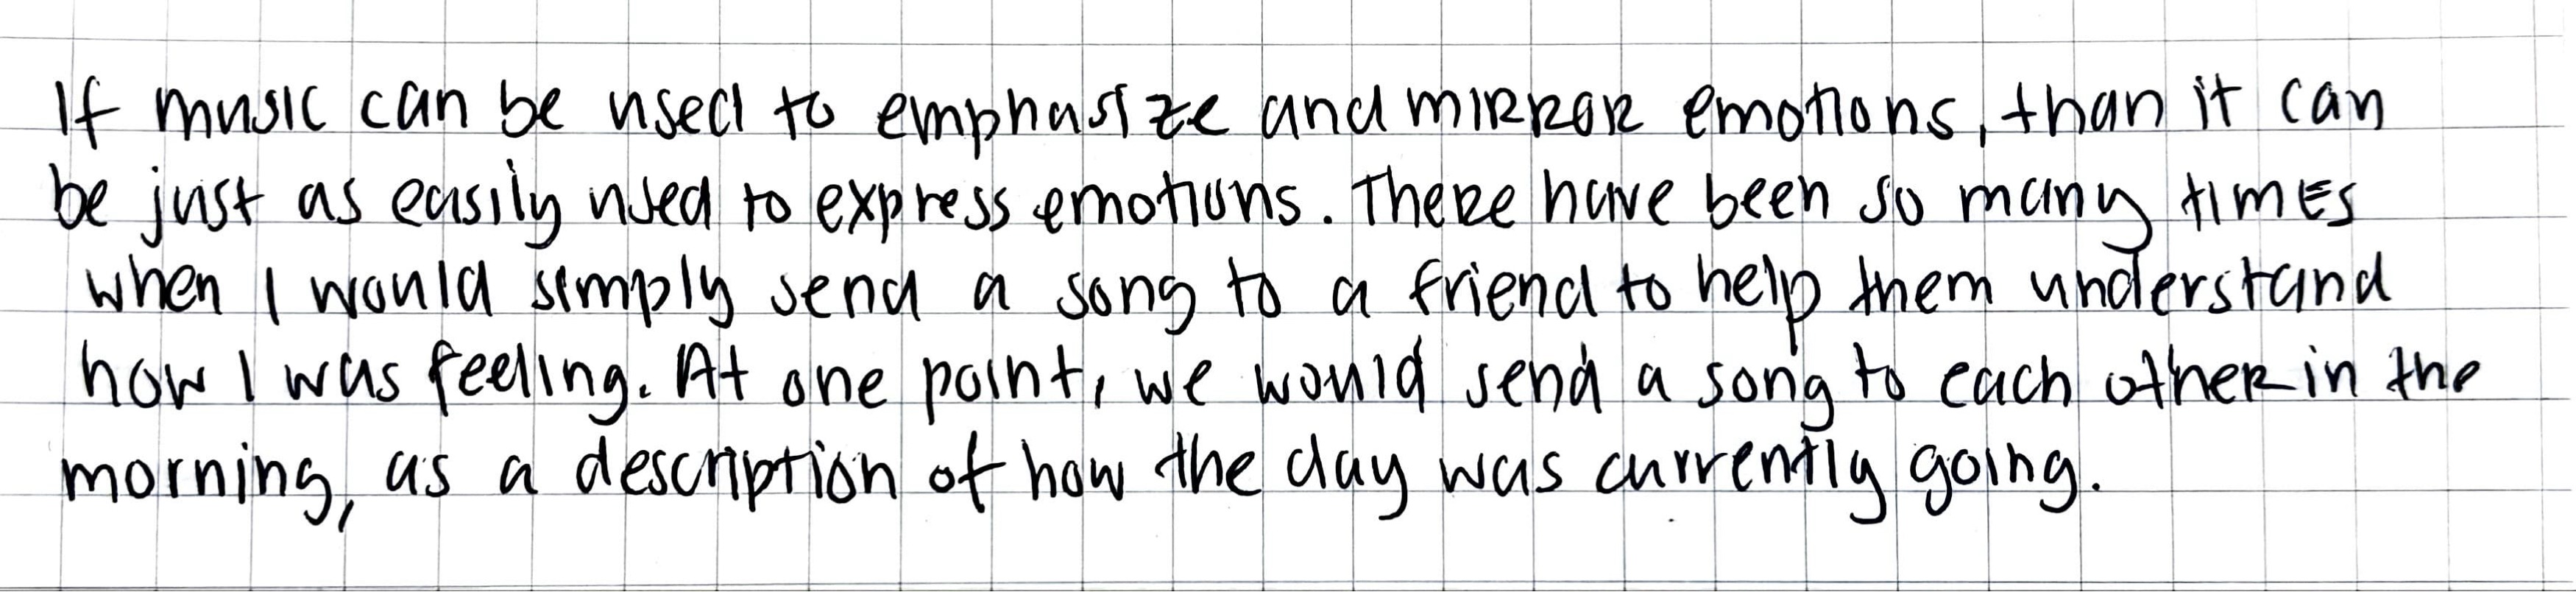 If music can be used to emphasize and mirror emotions, than it can
be just as easily used to express emotions. There have been so many times
when I would simply send a song to a friend to help them understand
how I was feeling. At one point, we would send a song to each other in the
morning, as a description of how the day was currently going.